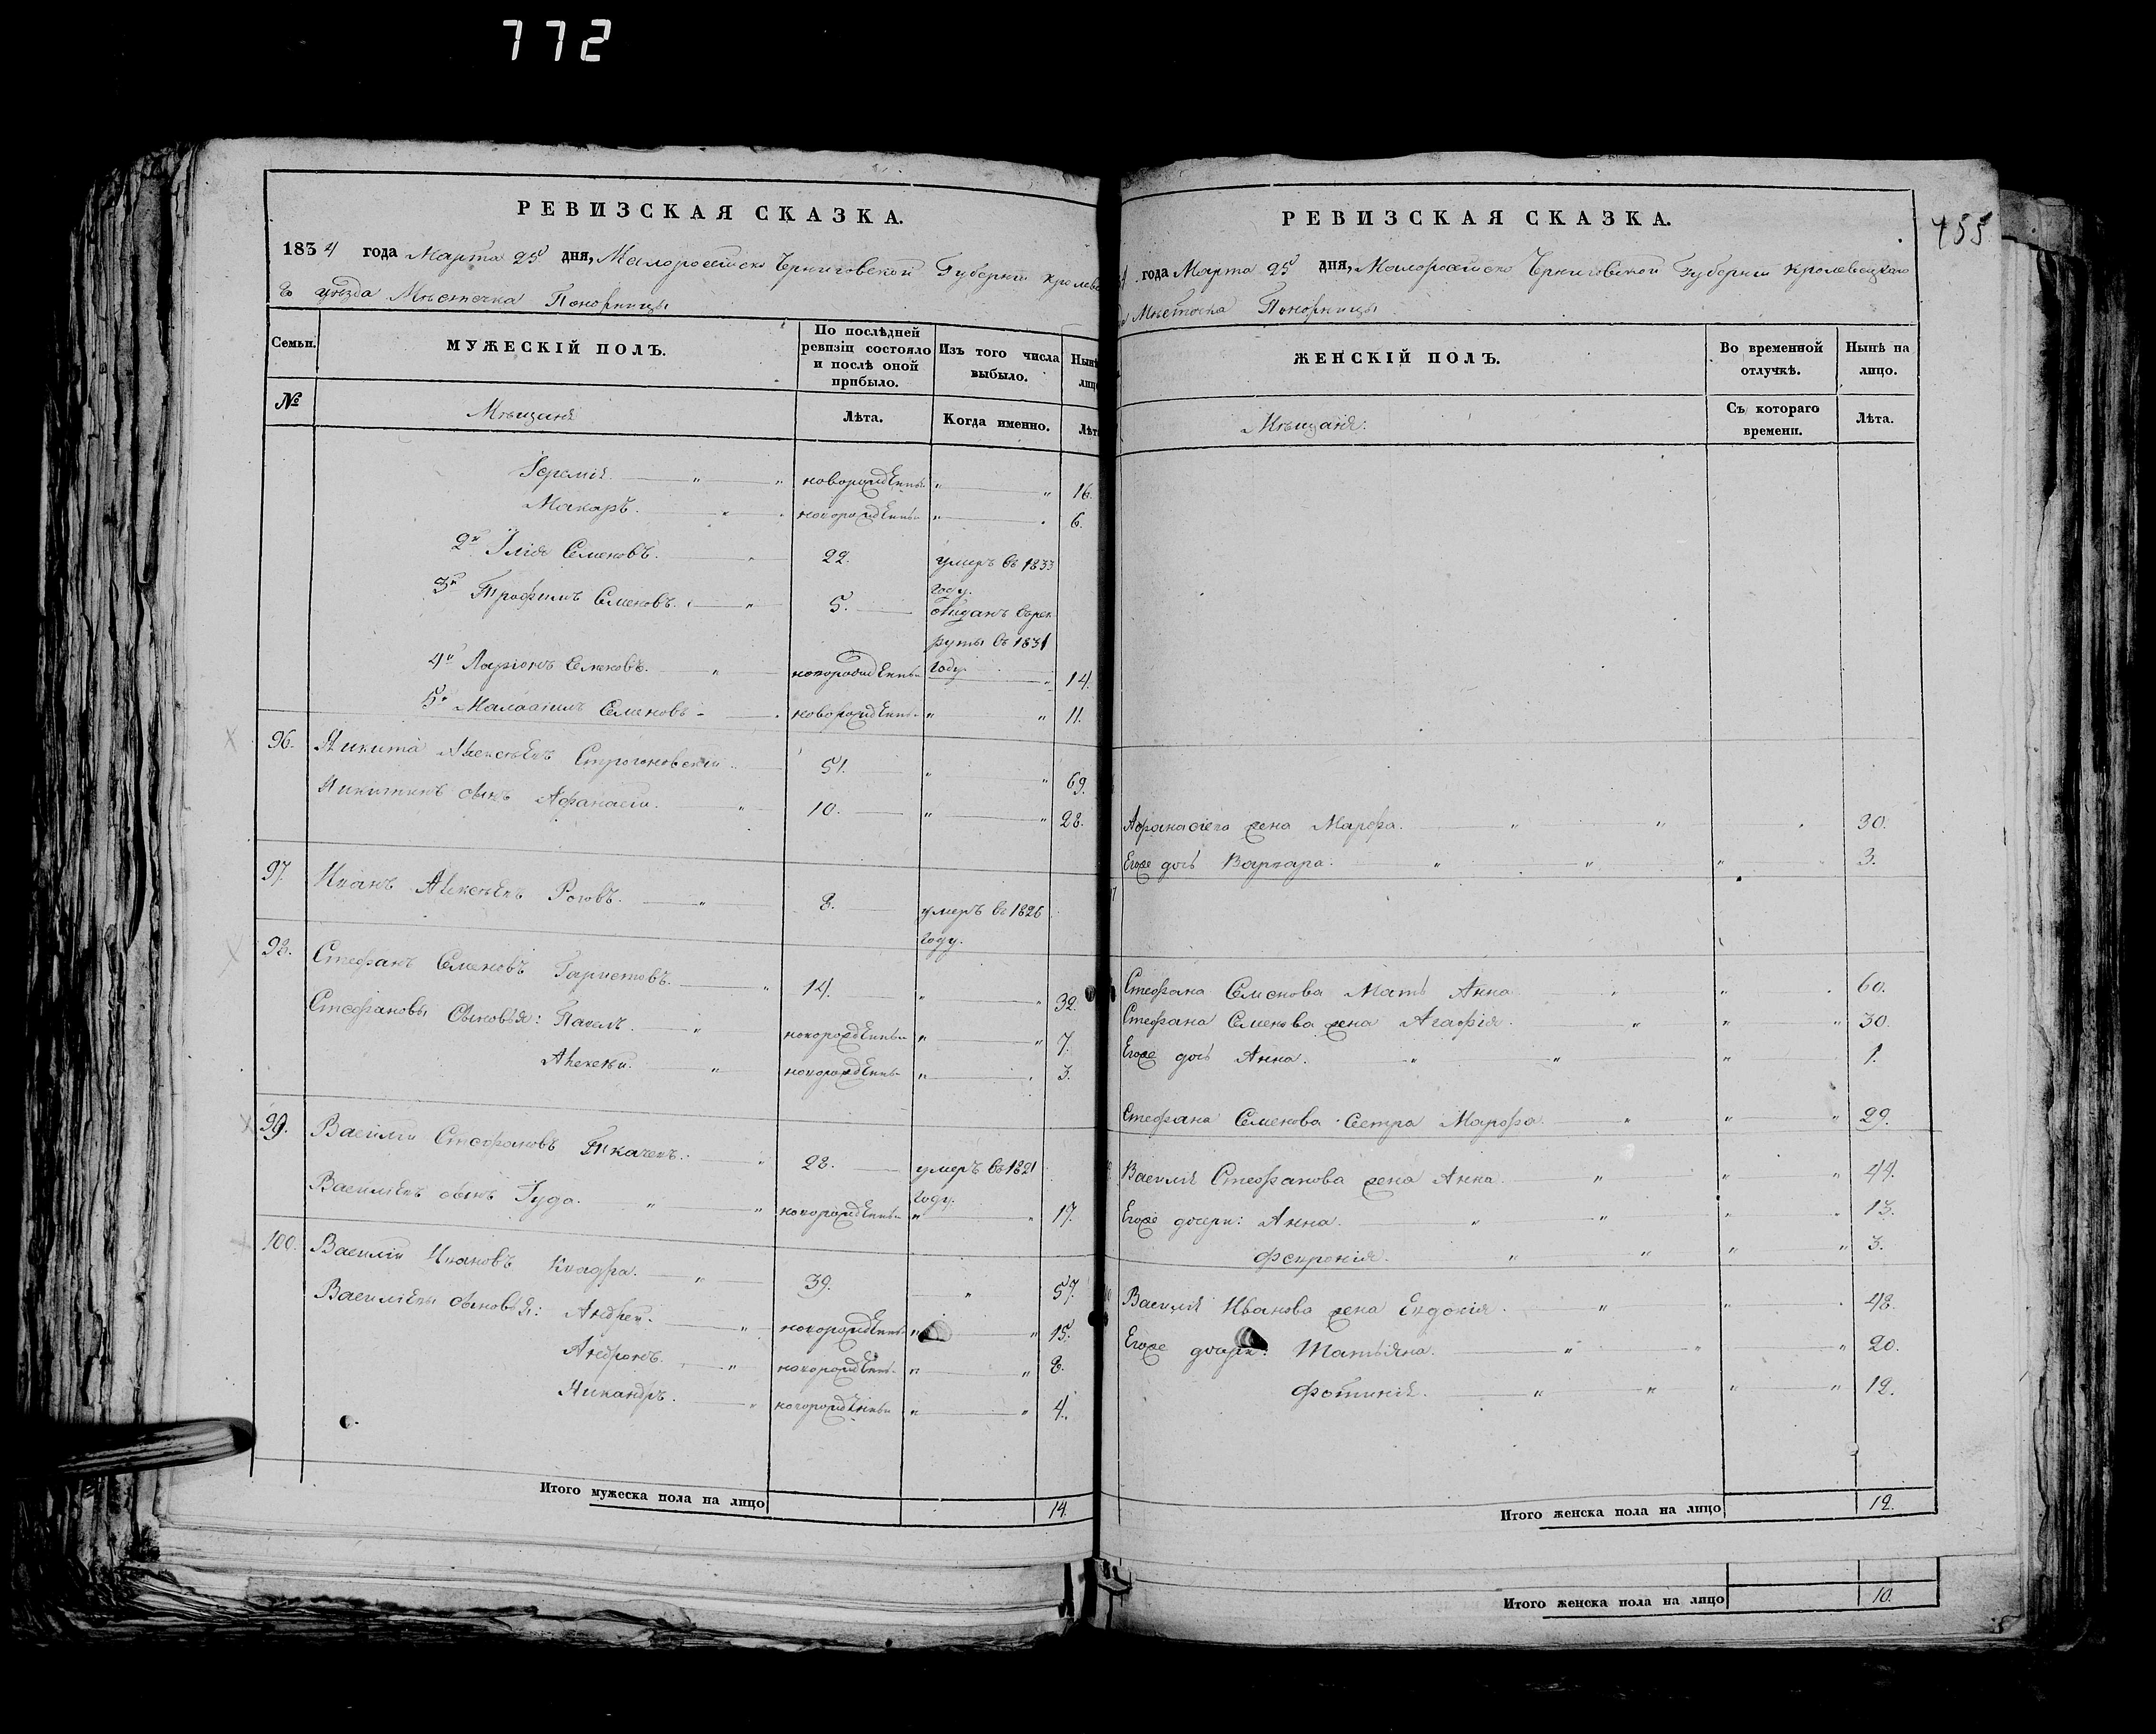 772
РЕВИЗСКАЯ СКАЗКА.
1834 года Марта 25 дня, Малороссійско Черниговской Губерніи Кролевец
го уезда Местечка Понорницы
Семьи.
МУЖЕСКІЙ ПОЛЪ.
По послѣдней ревизіи состояло и послѣ оной прибыло.
Изъ того числа выбыло.
Нынѣ лицо
№
Мещане
Лѣта.
Когда именно.
Лѣт
Іеремія. новорожденны 16.
Макаръ. новорожденны 6.
2й Илія Семеновъ. 22. умеръ въ 1833 году.
3й Трофимъ Семеновъ. 5. отданъ въ рек
руты въ 1831 году.
4й Ларіонъ Семеновъ. новорожденны 14.
5й Семеновъ новорожденны 11.
96. Никита Алексѣевъ Строгоновский 51. 69.
Никитинъ сынъ Афанасий. 10. 28.
97. Иванъ Алексѣевъ Роговъ. 8. умеръ въ 1826 году.
98. Стефанъ Семеновъ 14. 32.
Стефановы Сыновья: Павелъ. новорожденны 7.
Алексѣй. новорожденны 3.
99. Василий Стефановъ Ткачевъ. 28. умеръ въ 1821 году.
Василіевъ сынъ Гуда. новорожденны 17.
100. Василій Ивановъ 39. 57.
Василіевы сыновья: Андрей. новорожденны 15.
Андронъ. новорожденны 8.
Никандръ. новорожденны 4.
Итого мужеска пола на лицо 14.
РЕВИЗСКАЯ СКАЗКА.
455
4 года Марта 25 дня, Малороссійско Черниговской Губерніи Кролевецкаго
да Местечка Понорницы
ЖЕНСКІЙ ПОЛЪ.
Во временной отлучкѣ.
Нынѣ на лицо.
Мещане:
Съ котораго времени.
Лѣта.
Афанасіева жена Марфа. 30.
Егоже дочь Варвара. 3.
Стефана Семенова Мать Анна 60.
Стефана Семенова жена Агафія. 30.
Егоже дочь Анна. 1.
Стефана Семенова Сестра Марфа. 29.
Василія Стефанова жена Анна. 44.
Егоже дочери: Анна. 13.
Февронія. 3.
Василія Иванова жена Евдокія. 48.
Егоже дочери: Татьяна. 20.
Фотинія. 12.
Итого женска пола на лицо 12.
Итого женска пола на лицо 10.